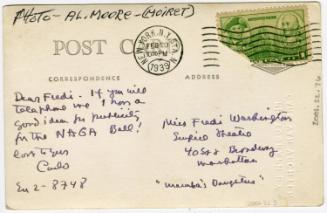 PHOTO - AL. MOORE - (MOIRET)
POST CARD
NEW YORK, N.Y. STA. N
FEB
1939
CORRESPONDENCE
ADDRESS
Dear Fredi - If you will
telephone me I have a
good idea for publicity
for the NAGA Ball!
Love to you
Carlo
En 2-8748
Miss Fredi Washington
Empire Theatre
40 St & Broadway
Manhattan
"Mamba's Daughters"